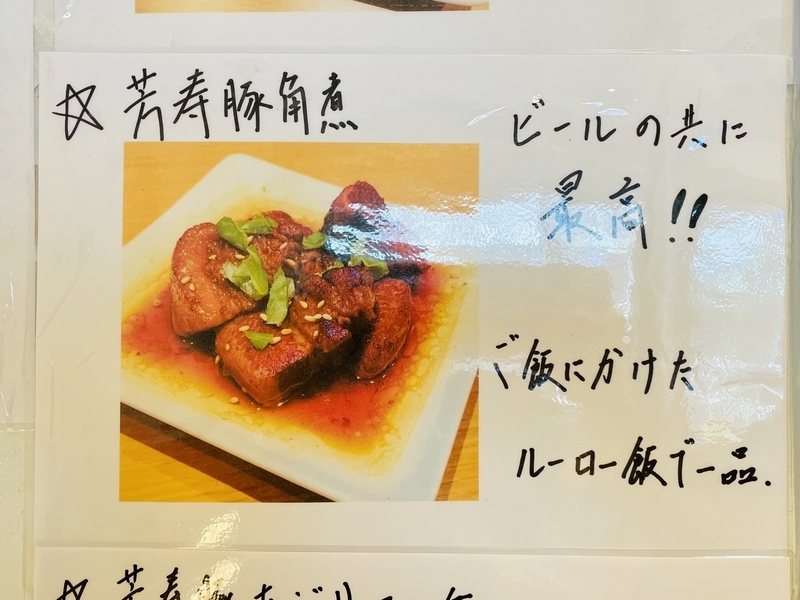 ☆ 芳寿豚角煮
ビールの共に
最高!!
ご飯にかけた
ルーロー飯で一品.
☆ 芳寿